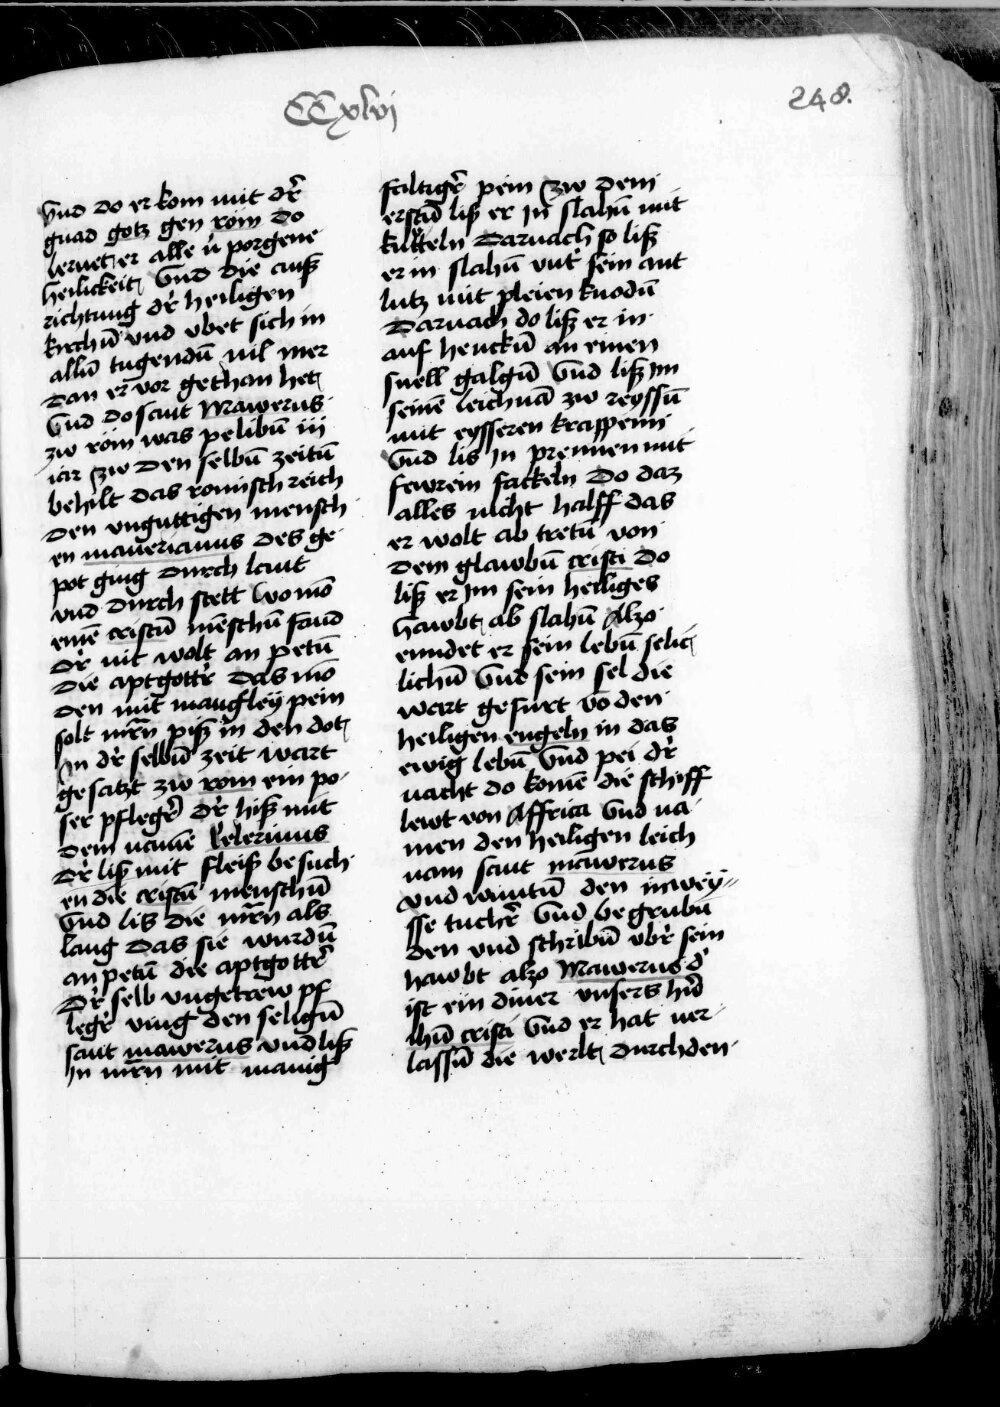 CCxlvi
248.
Vnd do er kom mit dr̄
gnad gotz gen rom do
lernet er alle v̈porgene
heilickeit Vnd die auß
richtung dr̄ heiligen
kirchn̄ vnd vbet sich in
alln̄ tugendn̄ vil mer
dan er vor gethan het
Vnd do sant Mawerus
zw rom was pelibn̄ iii
iar Zw den selbn̄ zeitn̄
behilt das romisch reich
den vnguttigen mensch
en maverianus des ge
pot ging durch lant
vnd durch stett wo mō
einē cristn̄ mēschn̄ fand
dr̄ nit wolt an petn̄
die aptgottr̄ das mō
den mit mangßley pein
solt mr̄rn piß in den dot
In dr̄ selbn̄ zeit wart
gesatzt zw rom ein po
ser pflegr̄ dr̄ hiß mit
dem namē Celerinus
dr̄ liß mit fleiß besuch
en die cristn̄ menschn̄
Vnd lis die mr̄rn als
lang das sie wurdn̄
an petn̄ die aptgottr̄
Dr̄ selb vngetrew pf
legr̄ ving den selign̄
sant mawerus vnd liß
In mr̄rn mit manig
faltigr̄ pein Zw dem
erstn̄ liß er in slahn̄ mit
kutteln Darnach so liß
er in slahn̄ vnt̄ sein ant
lutz mit pleien knodn̄
Darnach do liß er in
auf henckn̄ an einen
snell galgn̄ Vnd liß im
seinē leichnā zw reyssn̄
mit eysseren krappenn
Vnd lis in prennen mit
fewrein fackeln Do daz
alles nicht halff das
er wolt ab tretn̄ von
dem glawbn̄ cristi Do
liß er im sein heiliges
hawbt ab slahn̄ Alzo
enndet er sein lebn̄ selic
lichn̄ Vnd sein sel die
wart gefurt vō den
heiligen engeln in das
ewig lebn̄ Vnd pei dr̄
nacht do komē die schiff
lewt von Affrica Vnd na
men den heiligen leich
nam sant mawerus
vnd wantn̄ den in wey
sse tuchr̄ Vnd begrubn̄
den vnd schribn̄ vbr̄ sein
hawbt alzo Mawerus d̄
ist ein diner vnsers hr̄n
ihū cristi Vnd er hat ver
lassn̄ die werlt durch den